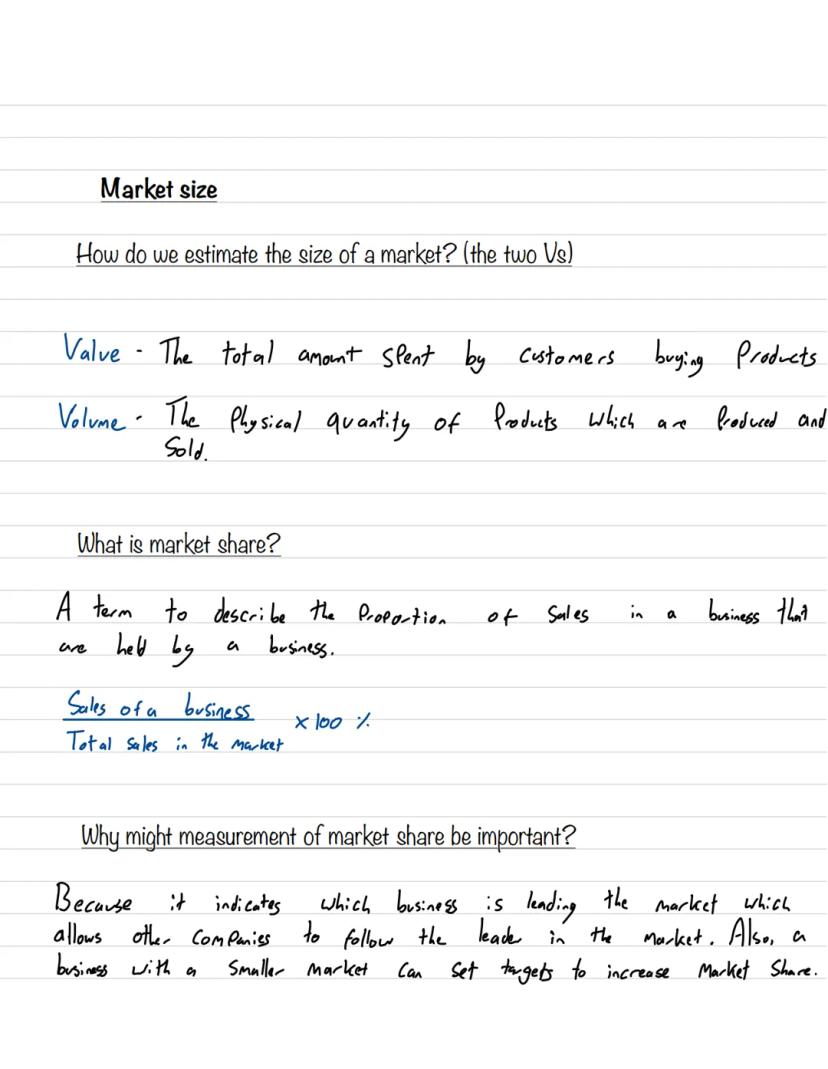 Market size
How do we estimate the size of a market? (the two Vs)
Value - The total amount spent by customers buying Products
Volume - The Physical quantity of Products which are Produced and
Sold.
What is market share?
A term to describe the Proportion of sales in a business that
are held by a business.
Sales of a business
x 100 %
Total sales in the market
Why might measurement of market share be important?
Because it indicates which business is leading the market which
allows other Companies to follow the leader in the market. Also, a
business with a smaller market can set targets to increase Market Share.